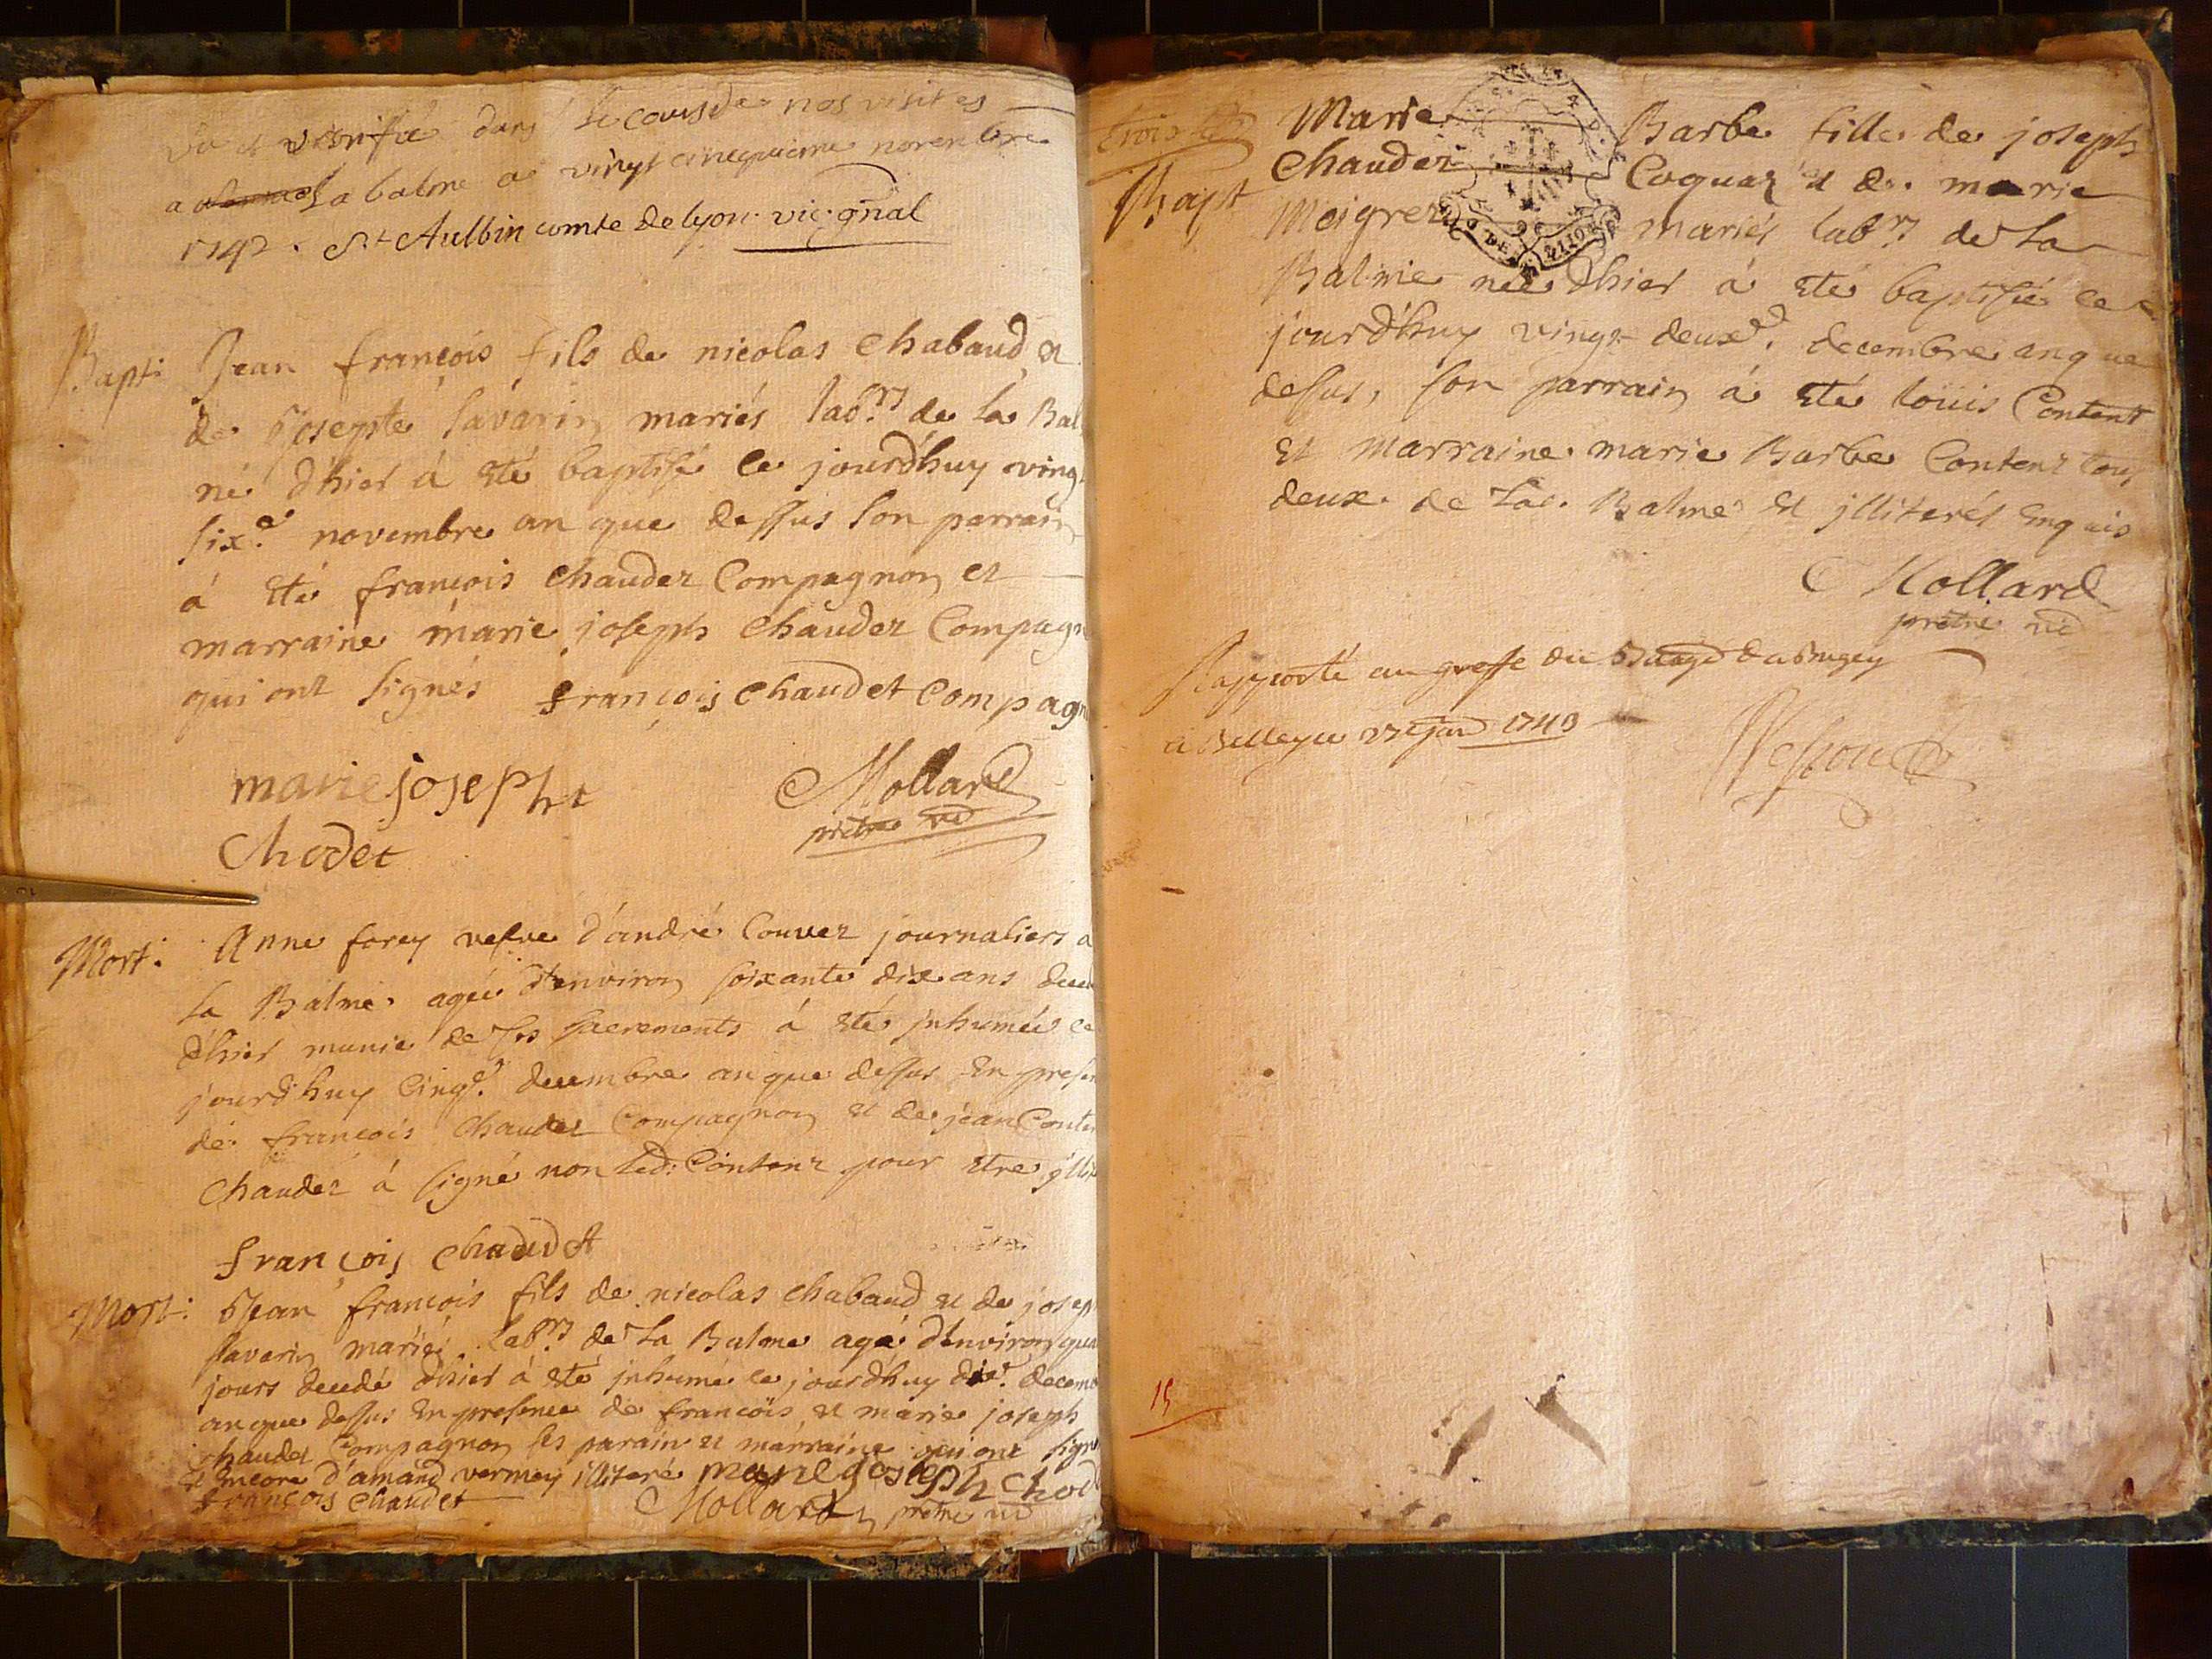 vu et verifié dans le cours de nos visites
a la balme ce vingt cinquieme novembre
1742. St Aulbin comte de lyon. vic. gñal
Bapt:
Jean françois fils de nicolas Chabaud, et
de josepte Savarin mariés labrs de la Bal
né d'hier á eté baptisé ce jourd'huy vingt
six.e novembre an que dessus son parrain
á eté françois Chaudet Compagnon et
marraine marie joseph Chaudet Compagn
qui ont signés françois chaudet compagn
marie joseph
Chodet
Mollard
prêtre
Mort:
Anne forey vefve d'andré Couvet journaliers a
la Balme agée d'environ soixante dix ans deced
d'hier munie de ses sacrements á eté jnhumée ce
jourd'huy Cinq.e decembre an que dessus En presen
de françois Chaudet Compagnon et de jean Conten
Chaudet á signé non led: Content pour etre jllit
françois chaudet
Mort:
Jean françois fils de nicolas Chabaud et de josep
Savarin mariés labrs de la Balme agé d'Environ qua
jours decedé d'hier á eté jnhumé ce jourd'huy dix.e decemb
an que dessus En presence de françois et marie joseph
Chaudet Compagnon ses parain et marraine qui ont signé
et Encore d'amand vermey illiteré marie joseph chod
françois chaudet Mollard prêtre
trois
Bapt
Marie Barbe fille de joseph
Chaudet Coquaz et de marie
Meigret mariés labrs de la
Balme née d'hier á eté baptisée ce
jourd'huy vingt deux.e decembre an que
dessus, son parrain á eté loüis Content
Et Marraine marie Barbe Content tous
deux de la Balme et jlliterés Enquis
Mollard
prêtre
Rapporté au greffe du Baage du Bugey
à Belley ce 27e janr 1743
15